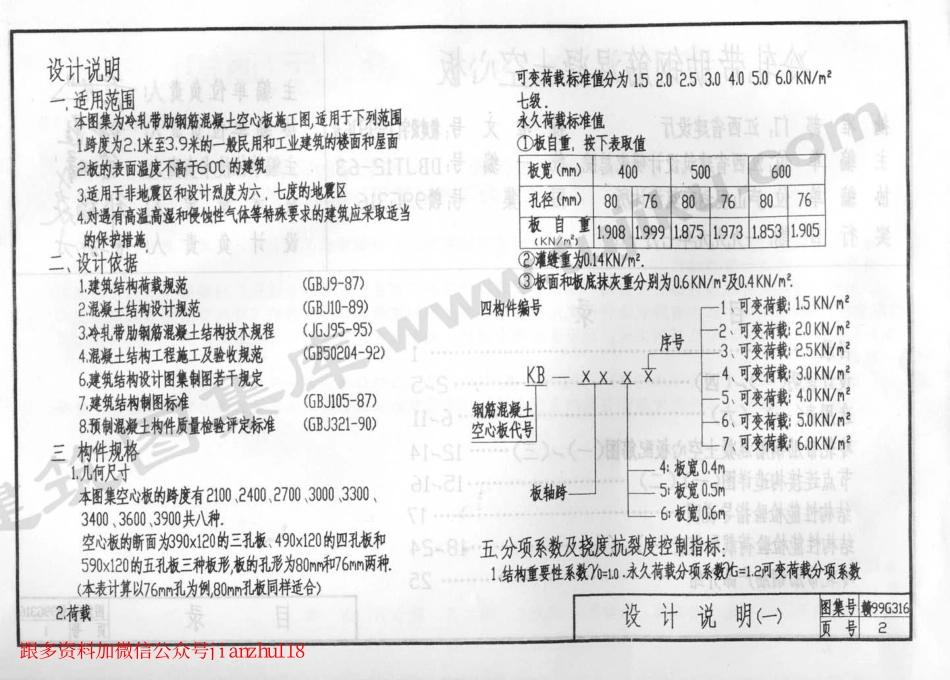 设计说明
一、适用范围
本图集为冷轧带肋钢筋混凝土空心板施工图,适用于下列范围
1.跨度为2.1米至3.9米的一般民用和工业建筑的楼面和屋面
2.板的表面温度不高于60℃的建筑
3.适用于非地震区和设计烈度为六、七度的地震区
4.对遇有高温,高湿和侵蚀性气体等特殊要求的建筑应采取适当
的保护措施.
二、设计依据
1.建筑结构荷载规范 (GBJ9-87)
2.混凝土结构设计规范 (GBJ10-89)
3.冷轧带肋钢筋混凝土结构技术规程 (JGJ95-95)
4.混凝土结构工程施工及验收规范 (GB50204-92)
6.建筑结构设计图集制图若干规定
7.建筑结构制图标准 (GBJ105-87)
8.预制混凝土构件质量检验评定标准 (GBJ321-90)
三 构件规格
1.几何尺寸
本图集空心板的跨度有2100、2400、2700、3000、3300、
3400、3600、3900共八种.
空心板的断面为390x120的三孔板、490x120的四孔板和
590x120的五孔板三种板形,板的孔形为80mm和76mm两种.
(本表计算以76mm孔为例,80mm孔板同样适合)
2.荷载
可变荷载标准值分为 1.5 2.0 2.5 3.0 4.0 5.0 6.0 KN/m²
七级.
永久荷载标准值
①板自重, 按下表取值
板宽(mm) 400 500 600
孔径(mm) 80 76 80 76 80 76
板自重(KN/m²) 1.908 1.999 1.875 1.973 1.853 1.905
②灌缝重为0.14KN/m².
③板面和板底抹灰重分别为0.6KN/m²及0.4KN/m².
四构件编号
KB — x x x x
钢筋混凝土
空心板代号
板轴跨
序号
1、可变荷载: 1.5 KN/m²
2、可变荷载: 2.0KN/m²
3、可变荷载: 2.5KN/m²
4、可变荷载: 3.0KN/m²
5、可变荷载: 4.0KN/m²
6、可变荷载: 5.0KN/m²
7、可变荷载: 6.0KN/m²
4: 板宽0.4m
5: 板宽0.5m
6: 板宽0.6m
五.分项系数及挠度抗裂度控制指标:
1.结构重要性系数γ0=1.0.永久荷载分项系数γG=1.2可变荷载分项系数
设计说明(一)
图集号 赣99G316
页号 2
跟多资料加微信公众号jianzhu118